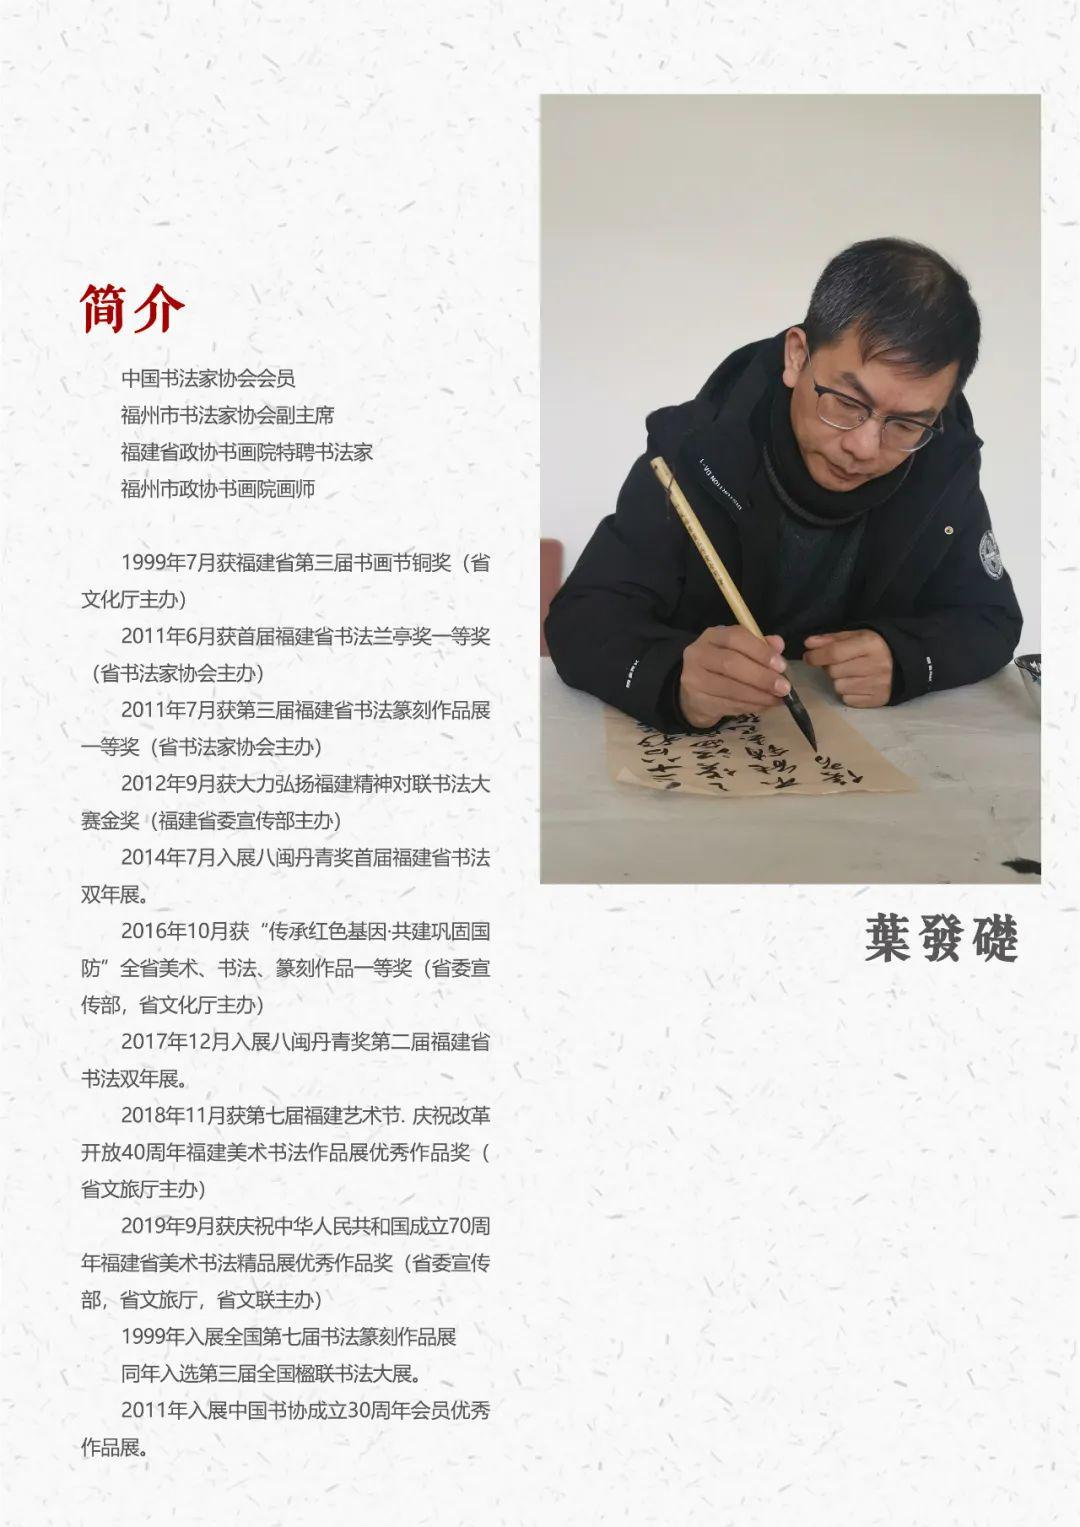 简介
中国书法家协会会员
福州市书法家协会副主席
福建省政协书画院特聘书法家
福州市政协书画院画师
1999年7月获福建省第三届书画节铜奖（省
文化厅主办）
2011年6月获首届福建省书法兰亭奖一等奖
（省书法家协会主办）
2011年7月获第三届福建省书法篆刻作品展
一等奖（省书法家协会主办）
2012年9月获大力弘扬福建精神对联书法大
赛金奖（福建省委宣传部主办）
2014年7月入展八闽丹青奖首届福建省书法
双年展。
2016年10月获“传承红色基因·共建巩固国
防”全省美术、书法、篆刻作品一等奖（省委宣
传部，省文化厅主办）
2017年12月入展八闽丹青奖第二届福建省
书法双年展。
2018年11月获第七届福建艺术节. 庆祝改革
开放40周年福建美术书法作品展优秀作品奖（
省文旅厅主办）
2019年9月获庆祝中华人民共和国成立70周
年福建省美术书法精品展优秀作品奖（省委宣传
部，省文旅厅，省文联主办）
1999年入展全国第七届书法篆刻作品展
同年入选第三届全国楹联书法大展。
2011年入展中国书协成立30周年会员优秀
作品展。
葉發礎